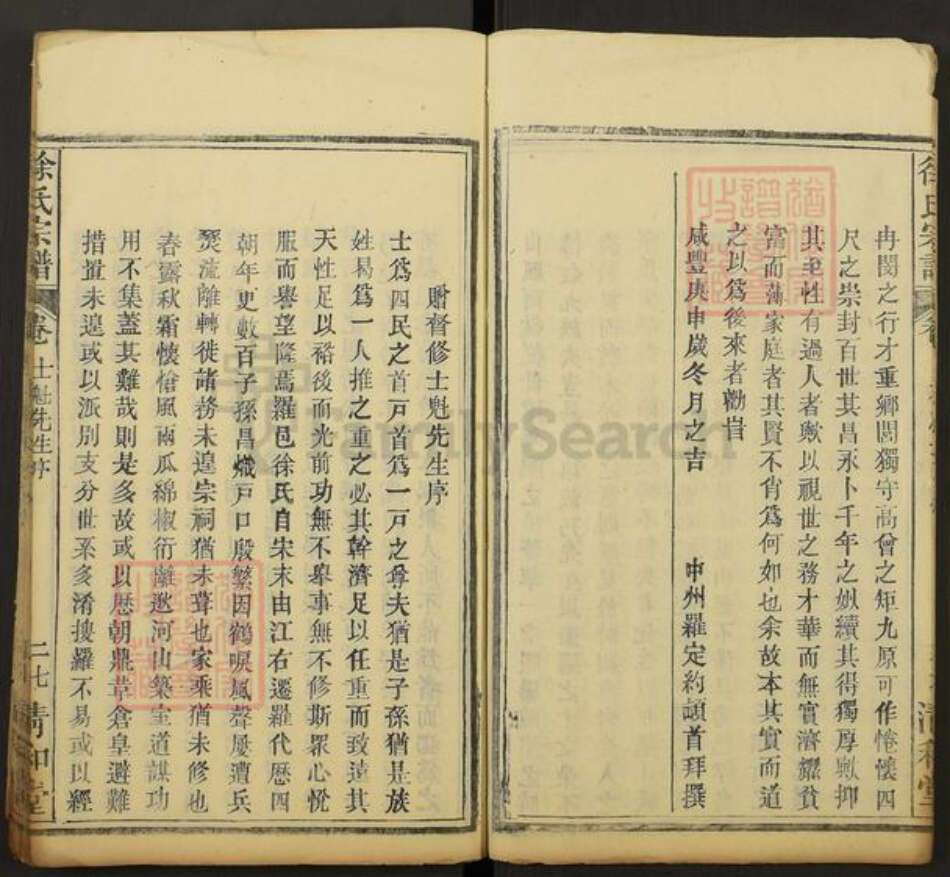 冉閔之行才重鄉閭獨守高曾之矩九原可作惓懷四
尺之崇封百世其昌永卜千年之姒續其得獨厚歟抑
其至性有過人者歟以視世之務才華而無實濟耀貧
富而薄家庭者其賢不肖爲何如也余故本其實而道
之以爲後來者勸旹
咸豐庚申歲冬月之吉　申州羅定約頡首拜撰
徐氏宗譜　卷　士魁先生序　二七　清和堂
贈督修士魁先生序
士爲四民之首戸首爲一戸之尊夫猶是子孫猶是族
姓曷爲一人推之重之必其幹濟足以任重而致遠其
天性足以裕後而光前功無不舉事無不修斯眾心悅
服而譽望隆焉羅邑徐氏自宋末由江右遷羅代歷四
朝年更數百子孫昌熾戸口殷繁因鶴唳風聲屢遭兵
燹流離轉徙諸務未遑宗祠猶未葺也家乘猶未修也
春露秋霜懷愴風雨瓜綿椒衍離逖河山築室道謀功
用不集蓋其難哉則是多故或以歷朝鼎革倉皇避難
措置未遑或以派別支分世系多淆搜羅不易或以經
FamilySearch